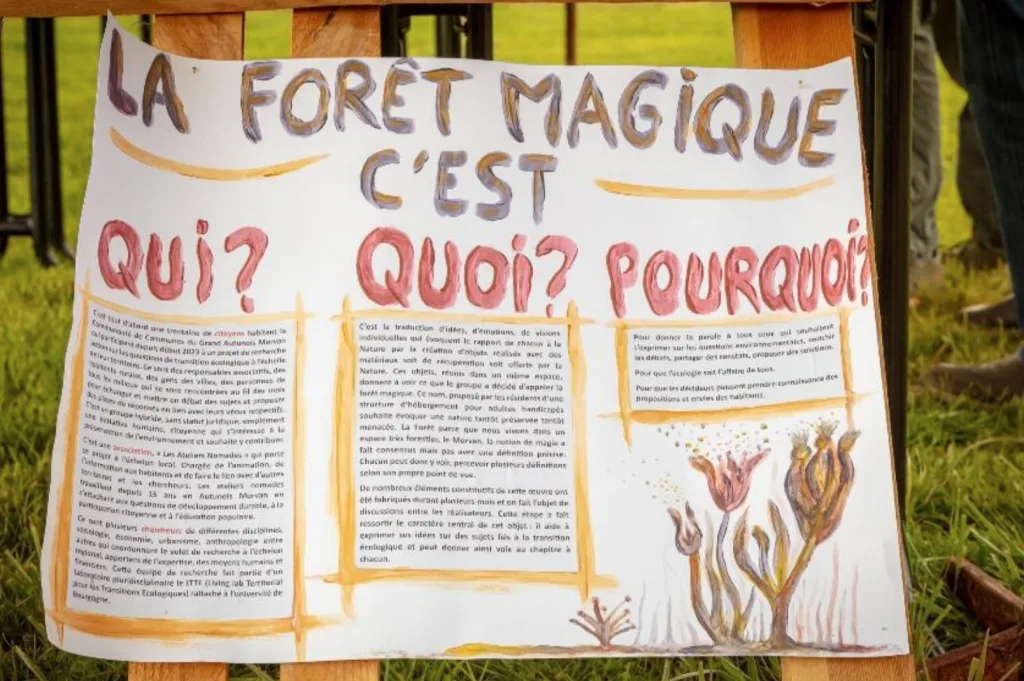 LA FORÊT MAGIQUE
C'EST
QUI?
C'est tout d'abord une trentaine de citoyens habitant la
Communauté de Communes du Grand Autunois Morvan
qui participent depuis début 2023 à un projet de recherche
autour des questions de transition écologique à l'échelle
de leur territoire. Ce sont des responsables associatifs, des
habitants ruraux, des gens des villes, des personnes de
tous les milieux qui se sont rencontrées au fil des mois
pour échanger et mettre en débat des sujets et proposer
des pistes de réponses en lien avec leurs vécus respectifs.
C'est un groupe hybride, sans statut juridique, simplement
une initiative humaine, citoyenne qui s'intéresse à la
préservation de l'environnement et souhaite y contribuer.
C'est une association, « Les Ateliers Nomades » qui porte
le projet à l'échelon local. Chargée de l'animation, de
l'information aux habitants et de faire le lien avec d'autres
territoires et les chercheurs. Les ateliers nomades
travaillent depuis 15 ans en Autunois Morvan en
s'attachant aux questions de développement durable, à la
participation citoyenne et à l'éducation populaire.
Ce sont plusieurs chercheurs de différentes disciplines,
sociologie, économie, urbanisme, anthropologie entre
autres qui coordonnent le volet de recherche à l'échelon
régional, apportent de l'expertise, des moyens humains et
financiers. Cette équipe de recherche fait partie d'un
laboratoire pluridisciplinaire le LTTE (Living Lab Territorial
pour les Transitions Ecologiques) rattaché à l'université de
Bourgogne.
QUOI?
C'est la traduction d'idées, d'émotions, de visions
individuelles qui évoquent le rapport de chacun à la
Nature par la création d'objets réalisés avec des
matériaux soit de récupération soit offerts par la
Nature. Ces objets, réunis dans un même espace,
donnent à voir ce que le groupe a décidé d'appeler la
forêt magique. Ce nom, proposé par les résidents d'une
structure d'hébergement pour adultes handicapés
souhaite évoquer une nature tantôt préservée tantôt
menacée. La forêt parce que nous vivons dans un
espace très forestier, le Morvan, la notion de magie a
fait consensus mais pas avec une définition précise.
Chacun peut donc y voir, percevoir plusieurs définitions
selon son propre point de vue.
De nombreux éléments constitutifs de cette œuvre ont
été fabriqués durant plusieurs mois et on fait l'objet de
discussions entre les réalisateurs. Cette étape a fait
ressortir le caractère central de cet objet : il aide à
exprimer ses idées sur des sujets liés à la transition
écologique et peut donner ainsi voix au chapitre à
chacun.
POURQUOI?
Pour donner la parole à tous ceux qui souhaitent
s'exprimer sur les questions environnementales, enrichir
les débats, partager des constats, proposer des solutions.
Pour que l'écologie soit l'affaire de tous.
Pour que les décideurs puissent prendre connaissance des
propositions et envies des habitants.